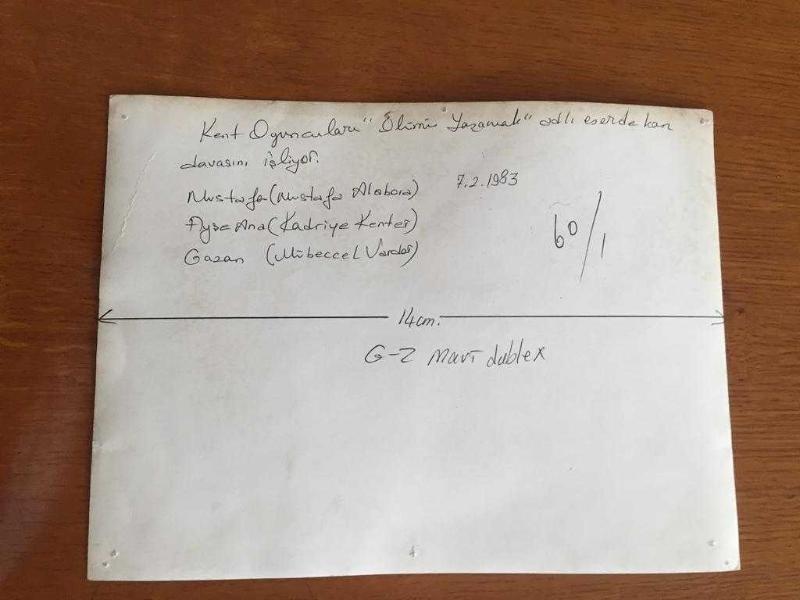 Kent Oyuncuları "Ölümü Yaşamak" adlı eserde kan
davasını işliyor.
Mustafa (Mustafa Alabora) 7.2.1983
Ayşe Ana (Kadriye Kenter)
Gazan (Mübeccel Vardar)
60/1
14 cm.
G-2 Mavi dublex